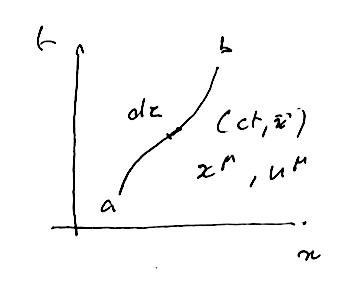 t
b
dτ
(ct, x⃗)
x^μ, u^μ
a
x